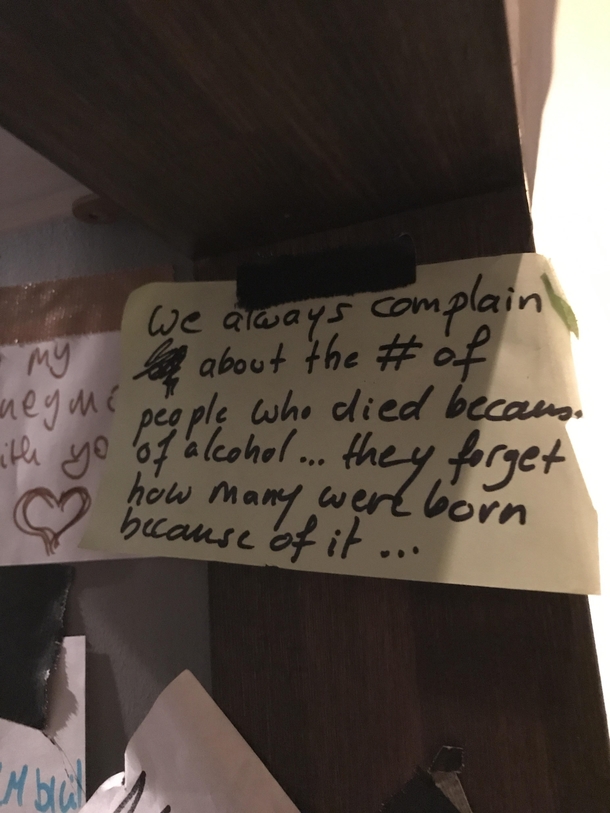 We always complain
about the # of
people who died becaus
of alcohol... they forget
how many were born
because of it ...
my
ith yo